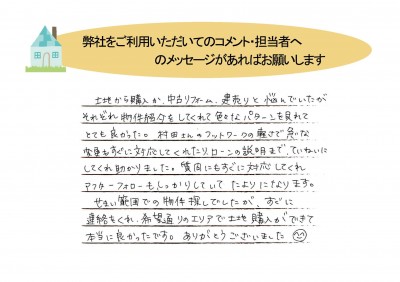 弊社をご利用いただいてのコメント・担当者へ
のメッセージがあればお願いします
土地から購入か、中古リフォーム、建売りと悩んでいたが
それぞれ物件紹介をしてくれて色々なパターンを見れて
とても良かった。村田さんのフットワークの軽さで急な
変更もすぐに対応してくれたり、ローンの説明まで、ていねいに
してくれ助かりました。質問にもすぐに対応してくれ
アフターフォローもしっかりしていてたよりになります。
せまい範囲での物件探しでしたが、すぐに
連絡をくれ、希望通りのエリアで土地購入ができて
本当に良かったです。ありがとうございました